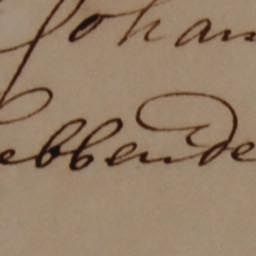 Johan
ebbende